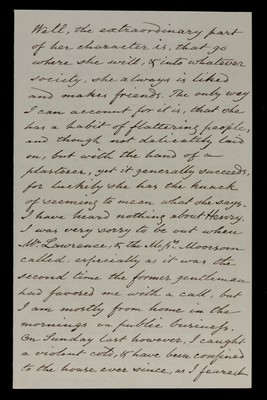 Well, the extraordinary part
of her character is, that go
where she will, & into whatever
society, she always is liked
and makes friends. The only way
I can account for it is, that she
has a habit of flattering people,
and though not delicately laid
on, but with the hand of a
plasterer, yet it generally succeeds,
for luckily she has the knack
of seeming to mean what she says.
I have heard nothing about Henry.
I was very sorry to be out when
Mr. Lawrence, & the Messrs. Moorsom
called, especially as it was the
second time the former gentleman
had favored me with a call, but
I am mostly from home in the
mornings on public business.
On Sunday last however, I caught
a violent cold, & have been confined
to the house ever since, as I feared